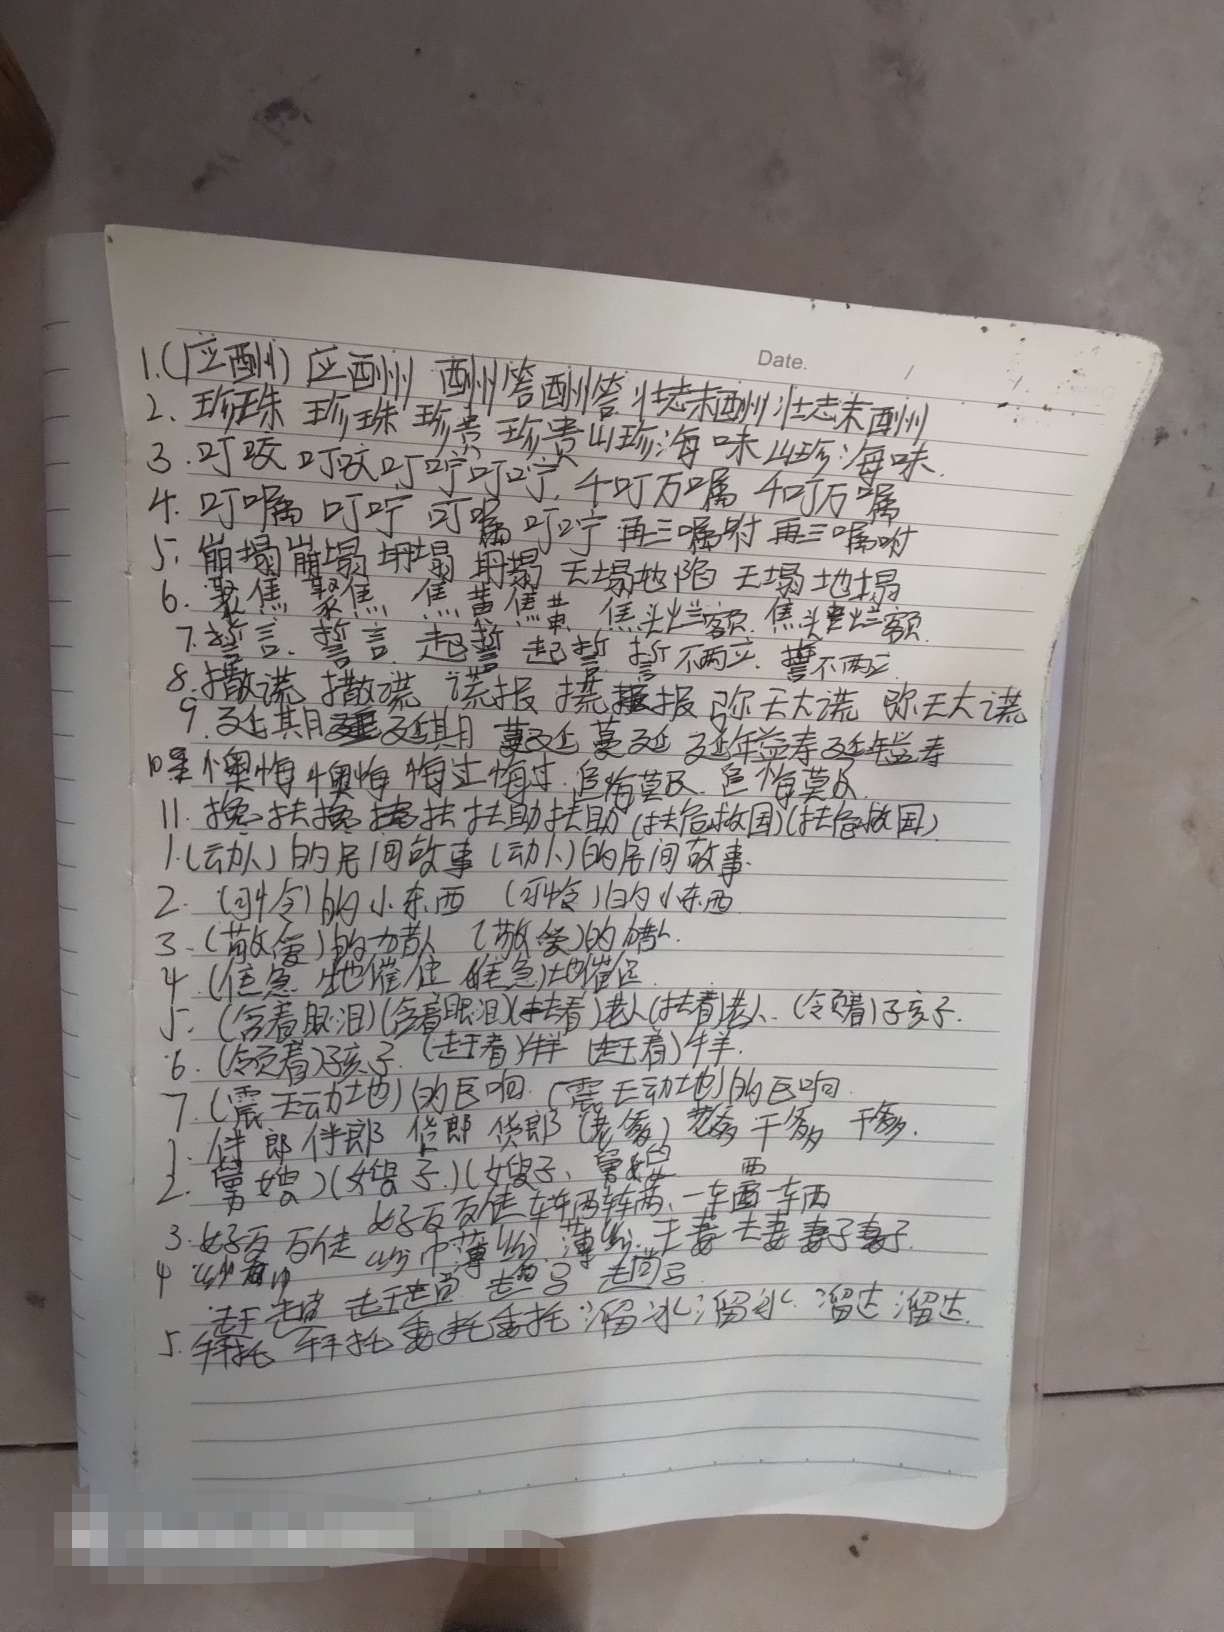 Date. / /
1.(应酬) 应酬 酬答酬答 壮志未酬壮志未酬
2. 珍珠 珍珠 珍贵 珍贵山珍海味 山珍海味
3. 叮咬 叮咬叮咛叮咛. 千叮万嘱 千叮万嘱
4. 叮嘱 叮咛 叮嘱 叮咛 再三嘱咐 再三嘱咐
5. 崩塌崩塌 坍塌 坍塌 天塌地陷 天塌地塌
6. 聚焦 聚焦 焦黄焦黄 焦头烂额 焦头烂额
7. 誓言. 誓言. 起誓 起誓. 誓不两立. 誓不两立
8. 撒谎 撒谎 谎报 谎报 弥天大谎 弥天大谎
9. 延期 延期 蔓延 蔓延 延年益寿延年益寿
懊悔懊悔 悔过悔过. 追悔莫及. 追悔莫及.
11. 搀扶搀扶 扶助扶助 (扶危救国)(扶危救国)
1.(动人)的民间故事 (动人)的民间故事.
2. (可怜)的小东西 (可怜)的小东西
3. (敬爱)的
4. 地催
5. (含着眼泪)(含着眼泪)(扶着)老人(扶着)老人. (领着)孩子.
6. (领着)孩子. (赶着)牛羊 (赶着)牛羊.
7. (震天动地)的巨响. (震天动地)的巨响.
1. 伴郎伴郎 货郎 货郎 (老爹) 老爹 干爹 干爹.
2. 舅嫂)(嫂子)(嫂子、
3. 好友 好友 车辆车辆、一车
4 纱巾 薄纱 薄纱. 夫妻 夫妻 妻子妻子.
赶趟
5. 拜托 拜托 委托委托 溜冰溜冰 溜达溜达.